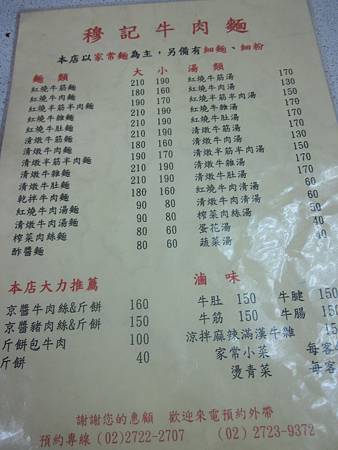 穆記牛肉麵
本店以家常麵為主，另備有細麵、細粉
麵 類 大 小
紅燒牛筋麵 210 190
紅燒牛肉麵 180 160
紅燒半筋半肉麵 190 170
紅燒牛雜麵 210 190
紅燒牛肚麵 210 190
清燉牛筋麵 210 190
清燉牛肉麵 180 160
清燉半筋半肉麵 190 170
清燉牛雜麵 210 190
清燉牛肚麵 210 190
乾拌牛肉麵 180 160
紅燒牛肉湯麵 90 80
清燉牛肉湯麵 90 80
榨菜肉絲麵 80 60
酢醬麵 80 60
湯 類
紅燒牛筋湯 170
紅燒牛肉湯 130
紅燒半筋半肉湯 150
紅燒牛雜湯 170
紅燒牛肚湯 170
清燉牛筋湯 170
清燉牛肉湯 130
清燉半筋半肉湯 150
清燉牛雜湯 170
清燉牛肚湯 170
紅燒牛肉清湯 60
清燉牛肉清湯 60
榨菜肉絲湯 50
蛋花湯 40
蔬菜湯 40
本店大力推薦
京醬牛肉絲&斤餅 160
京醬豬肉絲&斤餅 150
斤餅包牛肉 100
斤餅 40
滷 味
牛肚 150 牛腱 150
牛筋 150 牛腸 150
涼拌麻辣滿漢牛雜 150
家常小菜 每客
燙青菜 每客
謝謝您的惠顧 歡迎來電預約外帶
預約專線 (02)2722-2707 (02) 2723-9372